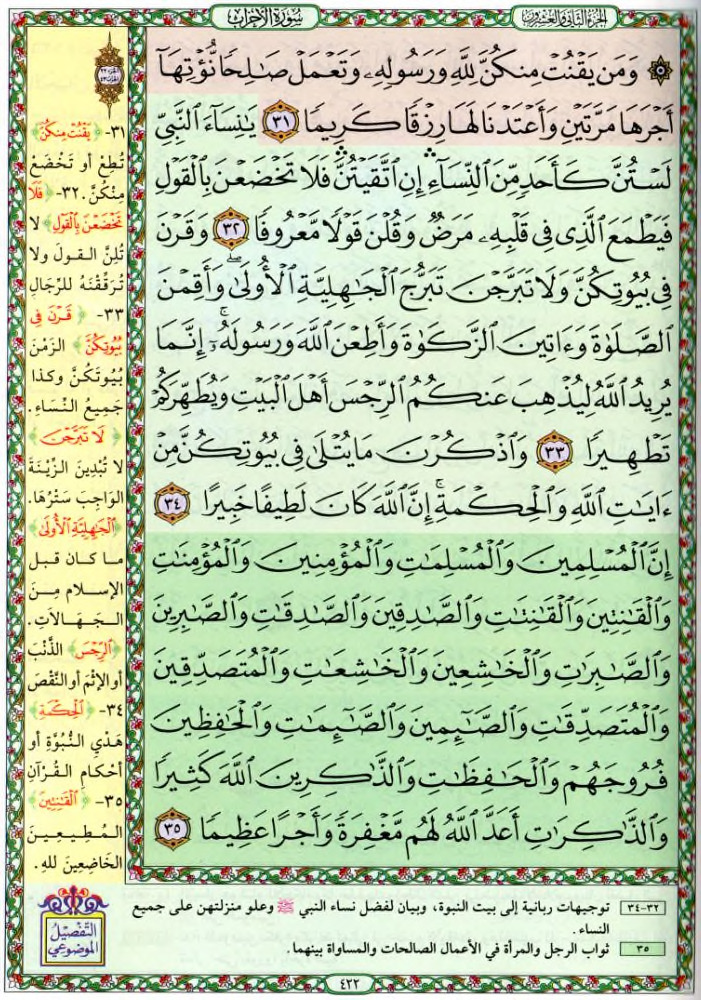 الجزء الثاني والعشرون
سُورَةُ الأَحْزَابِ
۞ وَمَن يَقْنُتْ مِنكُنَّ لِلَّهِ وَرَسُولِهِۦ وَتَعْمَلْ صَـٰلِحًا نُّؤْتِهَآ
أَجْرَهَا مَرَّتَيْنِ وَأَعْتَدْنَا لَهَا رِزْقًا كَرِيمًا ٣١ يَـٰنِسَآءَ ٱلنَّبِىِّ
لَسْتُنَّ كَأَحَدٍ مِّنَ ٱلنِّسَآءِ إِنِ ٱتَّقَيْتُنَّ فَلَا تَخْضَعْنَ بِٱلْقَوْلِ
فَيَطْمَعَ ٱلَّذِى فِى قَلْبِهِۦ مَرَضٌ وَقُلْنَ قَوْلًا مَّعْرُوفًا ٣٢ وَقَرْنَ
فِى بُيُوتِكُنَّ وَلَا تَبَرَّجْنَ تَبَرُّجَ ٱلْجَـٰهِلِيَّةِ ٱلْأُولَىٰ ۖ وَأَقِمْنَ
ٱلصَّلَوٰةَ وَءَاتِينَ ٱلزَّكَوٰةَ وَأَطِعْنَ ٱللَّهَ وَرَسُولَهُۥٓ ۚ إِنَّمَا
يُرِيدُ ٱللَّهُ لِيُذْهِبَ عَنكُمُ ٱلرِّجْسَ أَهْلَ ٱلْبَيْتِ وَيُطَهِّرَكُمْ
تَطْهِيرًا ٣٣ وَٱذْكُرْنَ مَا يُتْلَىٰ فِى بُيُوتِكُنَّ مِنْ
ءَايَـٰتِ ٱللَّهِ وَٱلْحِكْمَةِ ۚ إِنَّ ٱللَّهَ كَانَ لَطِيفًا خَبِيرًا ٣٤
إِنَّ ٱلْمُسْلِمِينَ وَٱلْمُسْلِمَـٰتِ وَٱلْمُؤْمِنِينَ وَٱلْمُؤْمِنَـٰتِ
وَٱلْقَـٰنِتِينَ وَٱلْقَـٰنِتَـٰتِ وَٱلصَّـٰدِقِينَ وَٱلصَّـٰدِقَـٰتِ وَٱلصَّـٰبِرِينَ
وَٱلصَّـٰبِرَٰتِ وَٱلْخَـٰشِعِينَ وَٱلْخَـٰشِعَـٰتِ وَٱلْمُتَصَدِّقِينَ
وَٱلْمُتَصَدِّقَـٰتِ وَٱلصَّـٰٓئِمِينَ وَٱلصَّـٰٓئِمَـٰتِ وَٱلْحَـٰفِظِينَ
فُرُوجَهُمْ وَٱلْحَـٰفِظَـٰتِ وَٱلذَّٰكِرِينَ ٱللَّهَ كَثِيرًا
وَٱلذَّٰكِرَٰتِ أَعَدَّ ٱللَّهُ لَهُم مَّغْفِرَةً وَأَجْرًا عَظِيمًا ٣٥
٣١- ﴿يَقْنُتْ مِنكُنَّ﴾
تُطِعْ أو تَخْضَعْ
مِنْكُنَّ. ٣٢- ﴿فَلَا
تَخْضَعْنَ بِالْقَوْلِ﴾ لا
تُلِنَّ القولَ ولا
تُرَقِّقْنَهُ للرِّجَالِ
٣٣- ﴿قَرْنَ فِى
بُيُوتِكُنَّ﴾ الزَمْنَ
بُيُوتَكُنَّ وكذا
جَمِيعُ النِّسَاءِ.
﴿لَا تَبَرَّجْنَ﴾
لا تُبْدِينَ الزِّينَةَ
الوَاجِبَ سَتْرُهَا.
﴿الْجَـٰهِلِيَّةِ الْأُولَىٰ﴾
ما كان قبل
الإسلام مِنَ
الجَهَالاَتِ.
﴿الرِّجْسَ﴾ الذَّنْبَ
أوالإِثْمَ أوالنَّقْصَ
٣٤- ﴿الْحِكْمَةِ﴾
هَدْيِ النُّبُوَّةِ أو
أحْكامِ القُرْآنِ
٣٥- ﴿الْقَـٰنِتِينَ﴾
المُطِيعِينَ
الخَاضِعِينَ للهِ.
٣٢-٣٤ توجيهات ربانية إلى بيت النبوة، وبيان لفضل نساء النبي ﷺ وعلو منزلتهن على جميع
النساء.
٣٥ ثواب الرجل والمرأة في الأعمال الصالحات والمساواة بينهما.
التَّفْصِيلُ
المَوْضُوعِي
٤٢٢